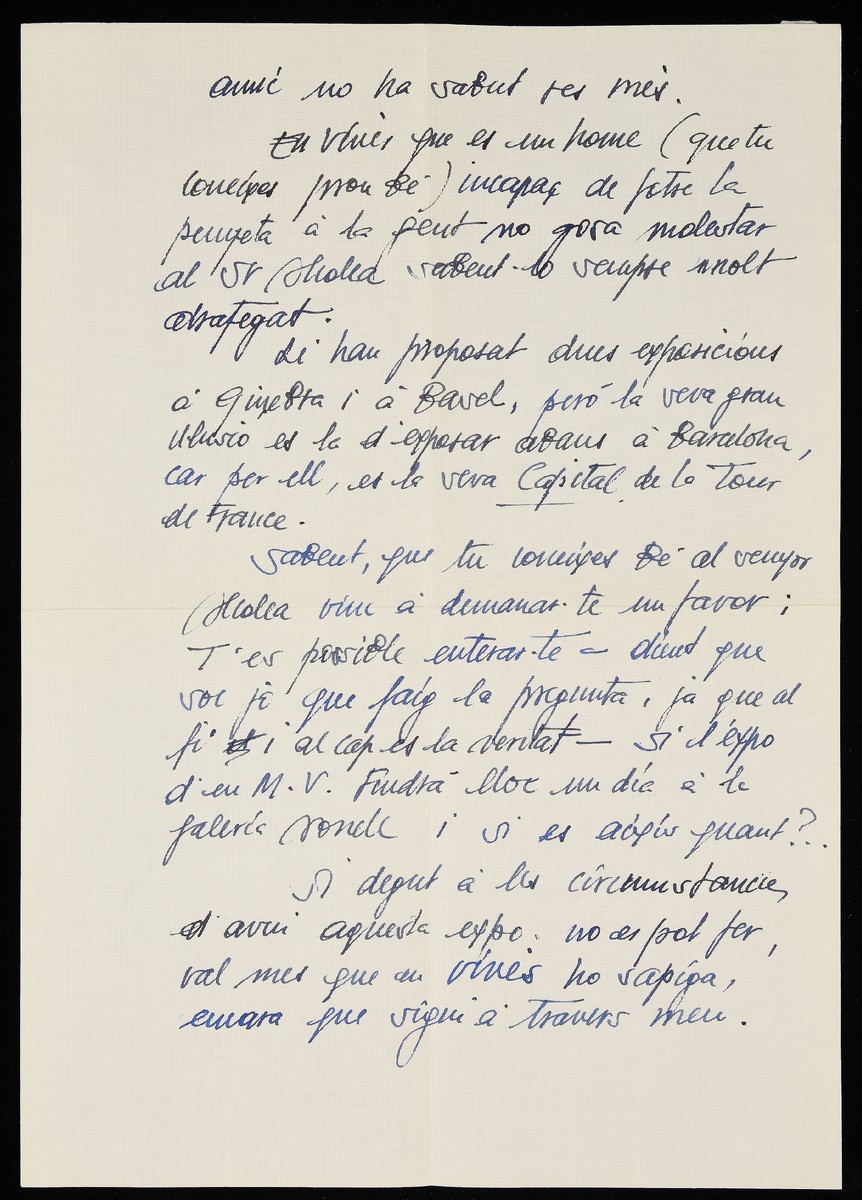 amic no ha sabut res més.
En Vinès que es un home (que tu
coneixes prou bé) incapaç de fotre la
punyeta à la gent no gosa molestar
al Sr Cholea sabent-lo sempre molt
atrafegat.
Li han proposat dues exposicións
à Ginebra i à Basel, peró la seva gran
il·lusio es la d'exposar abans à Barcelona,
car per ell, es la seva Capital de la Tour
de France.
Sabent, que tu coneixes bé al senyor
vinc à demanar-te un favor;
T'es possible enterar-te – dient que
soc jo que faig la pregunta, ja que al
fi i al cap es la veritat – si l'expo
d'en M.V. tindrà lloc un dia à la
galería i si es aixís quant?..
Si degut à les circumstancies
d'avui aquesta expo. no es pot fer,
val mes que en Vinès ho sapiga,
encara que sigui à travers meu.